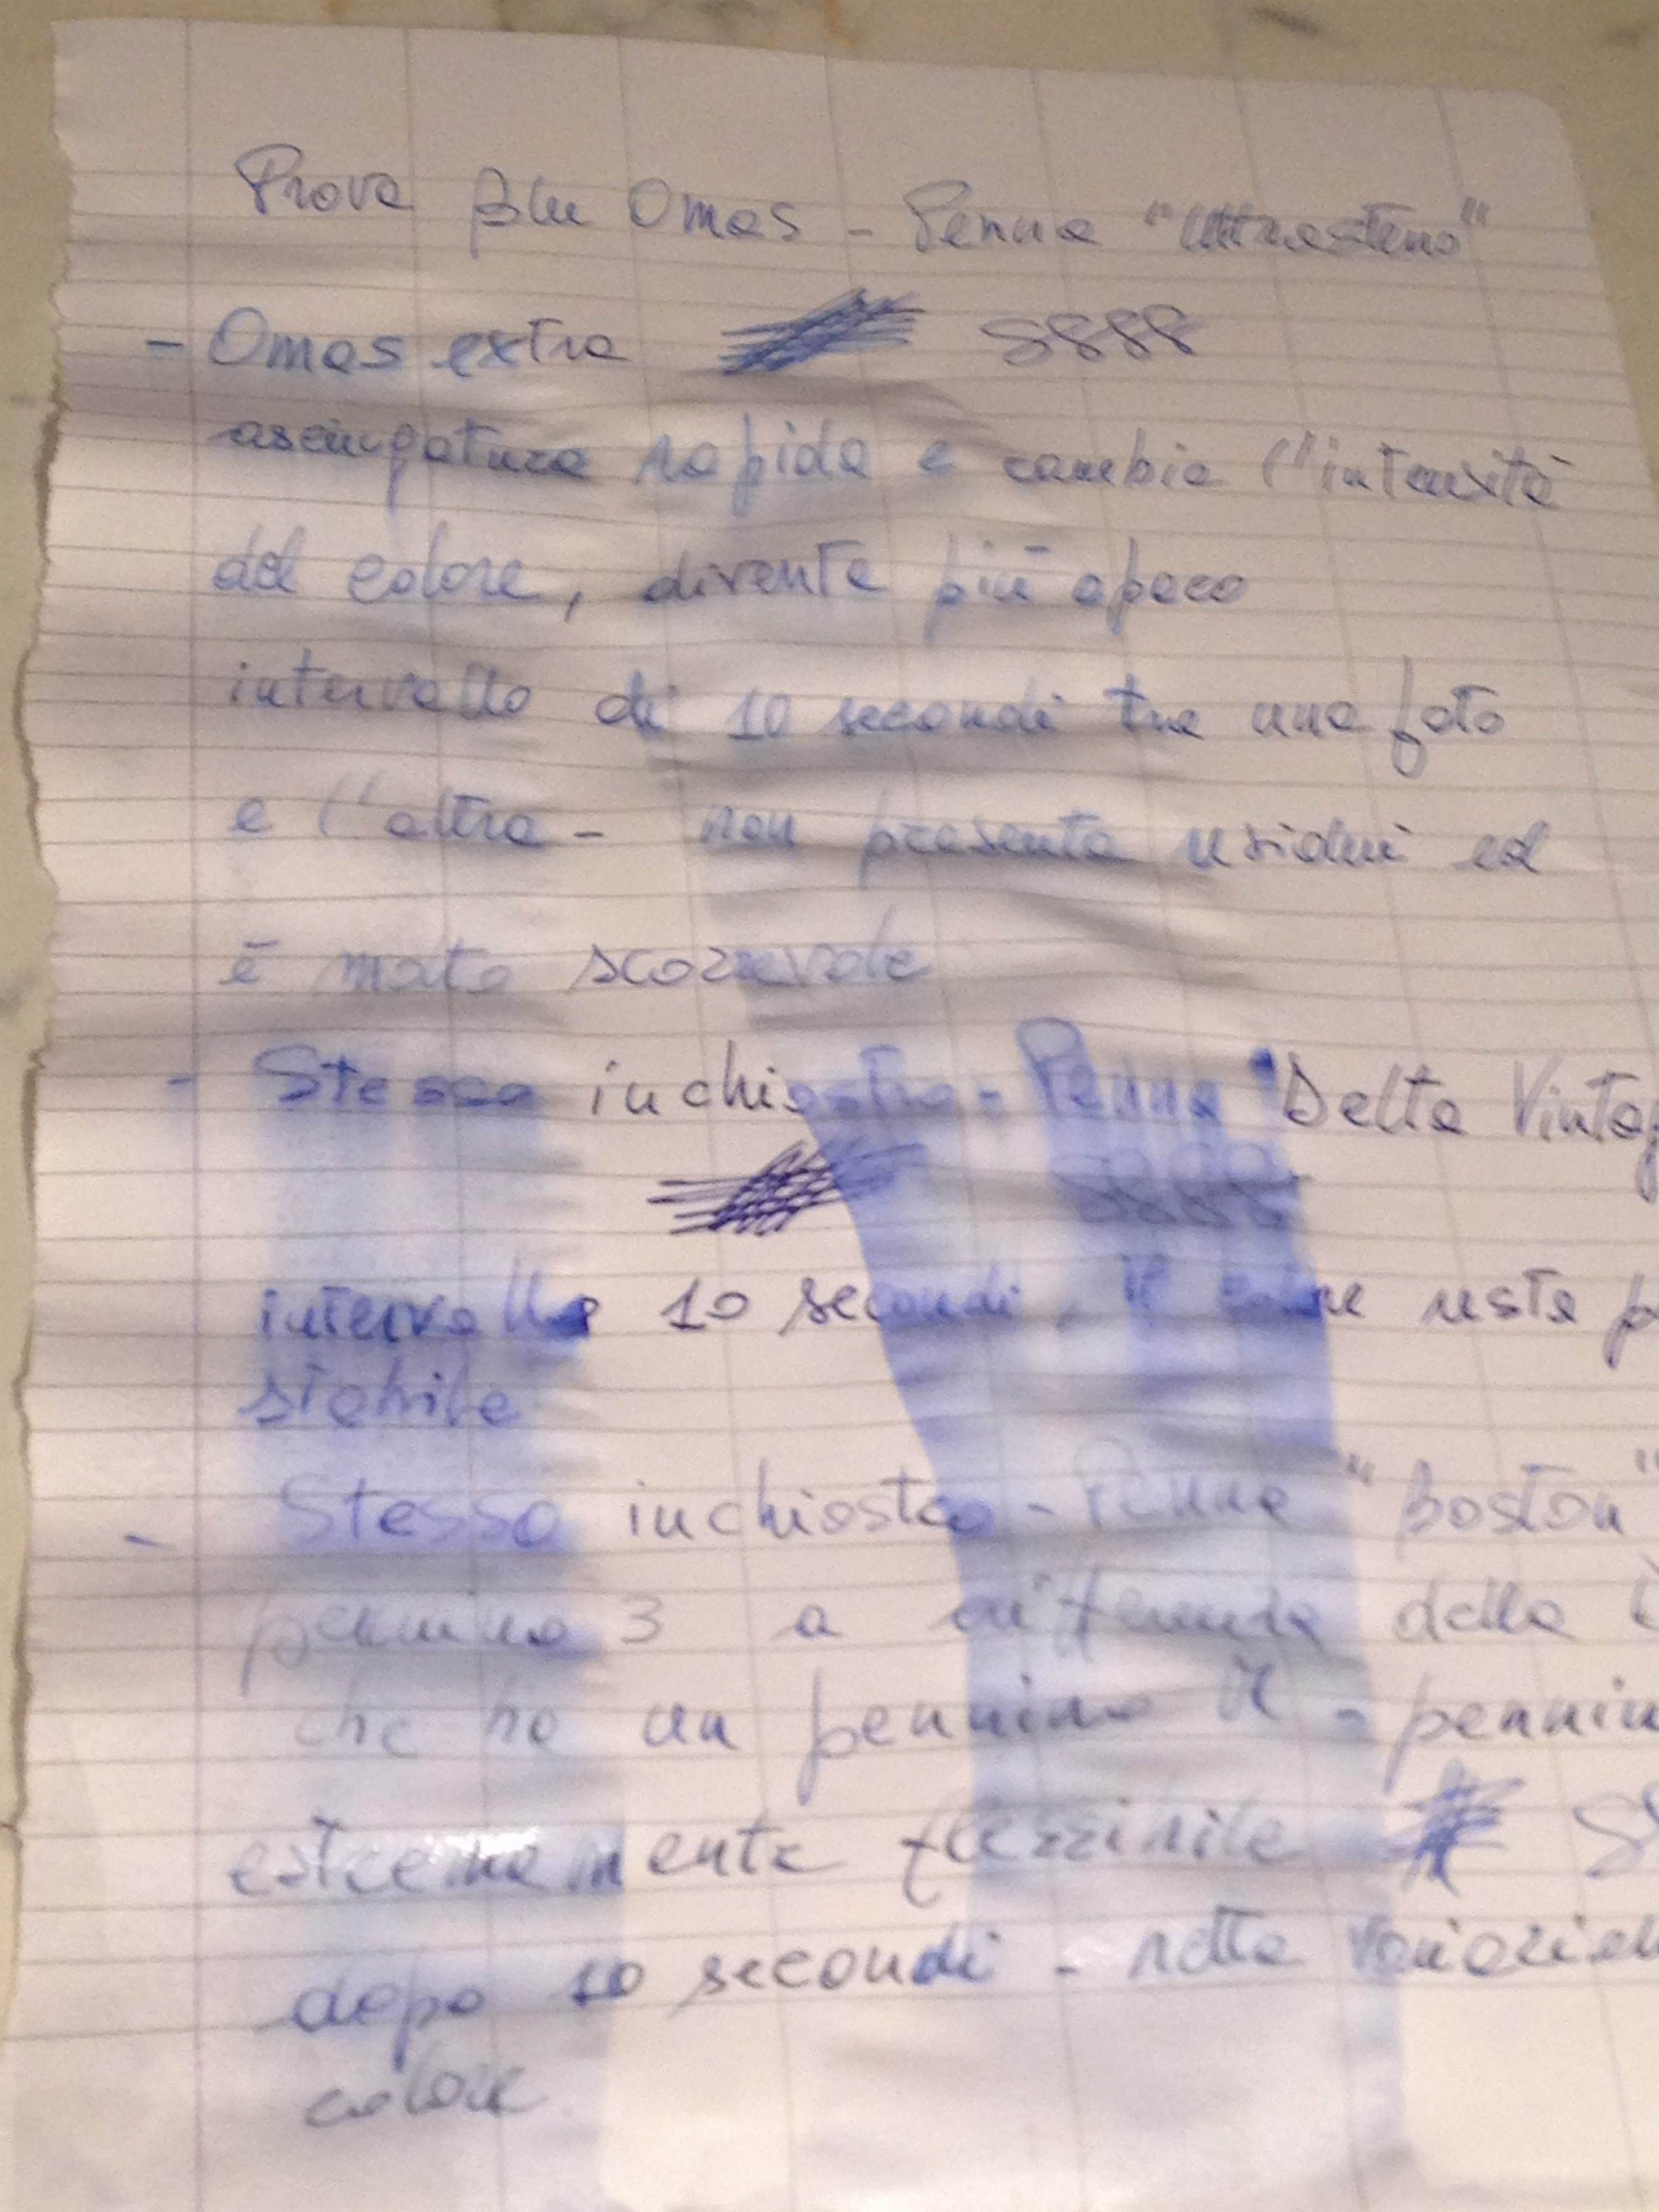 Prova Blu Omas - Penna "Ultrasteno"
- Omas extra 8888
asciugatura rapida e cambia l'intensità
del colore, diventa più opaco
intervallo di 10 secondi tra una foto
e l'altra - non presenta residui ed
è molto scorrevole
- Stesso inchiostro - Penna "Delta Vintag
8888
intervallo 10 secondi, il colore resta p
stabile
- Stesso inchiostro - Penna "Boston"
pennino 3 a differenza della
che ha un pennino - pennin
estremamente flessibile
dopo 10 secondi - netta variazion
colore